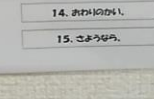 14. おわりのかい。
15. さようなら。